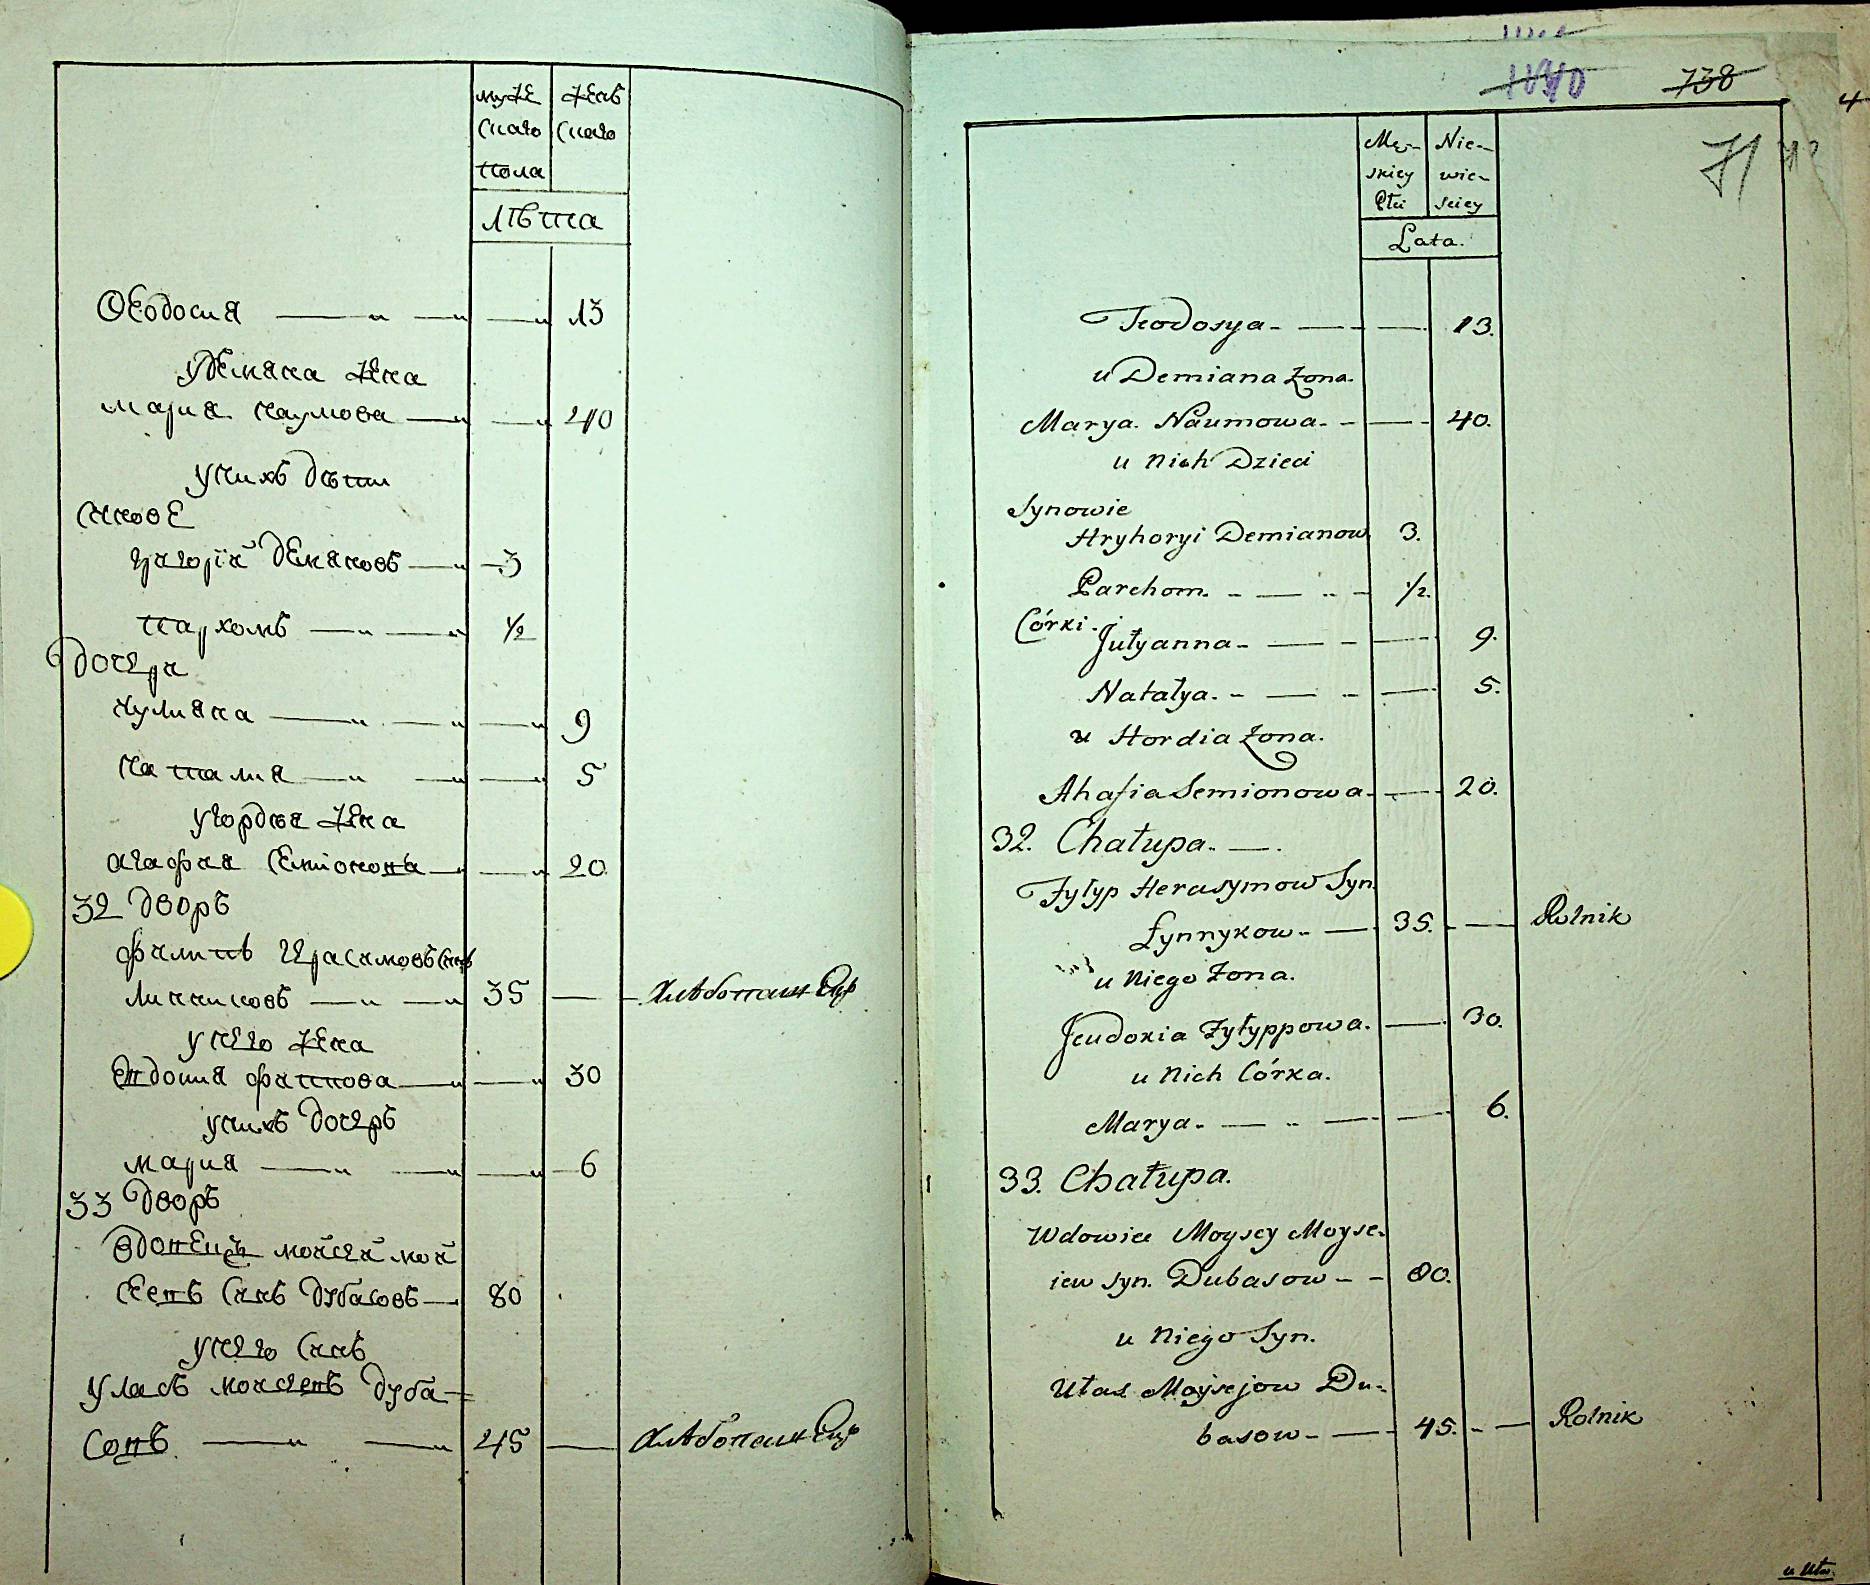 муже женъ
скаго скаго
пола
лѣта
Ѳеодосия 13
у демяна жена
мария наумова 40
у нихъ дѣти
синове
григорїй демяновъ 3
пархомъ 1/2
дочери
иулияна 9
наталия 5
у гордѣя жена
агафия семіонова 20
32 дворъ
филипъ герасимовъ синъ
линниковъ 35 хлѣбопашецъ
у него жена
евдокия филипова 30
у нихъ дочеръ
мария 6
33 дворъ
вдовецъ мойсей мой
сеевъ синъ дубасовъ 80
у него синъ
уласъ мойсеевъ дуба=
совъ 45 хлѣбопашецъ
738
71
Mę- Nie-
skiey wie-
Płci sciey
Lata.
Teodosya - 13.
u Demiana Żona.
Marya Naumowa - 40.
u Nich Dzieci
Synowie
Hryhoryi Demianow 3.
Parchom. 1/2.
Córki.
Jułyanna - 9.
Natałya. 5.
u Hordia Żona.
Ahafia Semionowa. 20.
32. Chałupa.
Fyłyp Herasymow Syn
Łynnykow - 35. Rolnik
u Niego Żona.
Jeudokia Fyłyppowa. 30.
u Nich Córka.
Marya. 6.
33. Chałupa.
Wdowiec Moysey Moyse-
iew syn. Dubasow - 80.
u Niego Syn.
Ułas Moysejow Du-
basow - 45. Rolnik
u Uła.